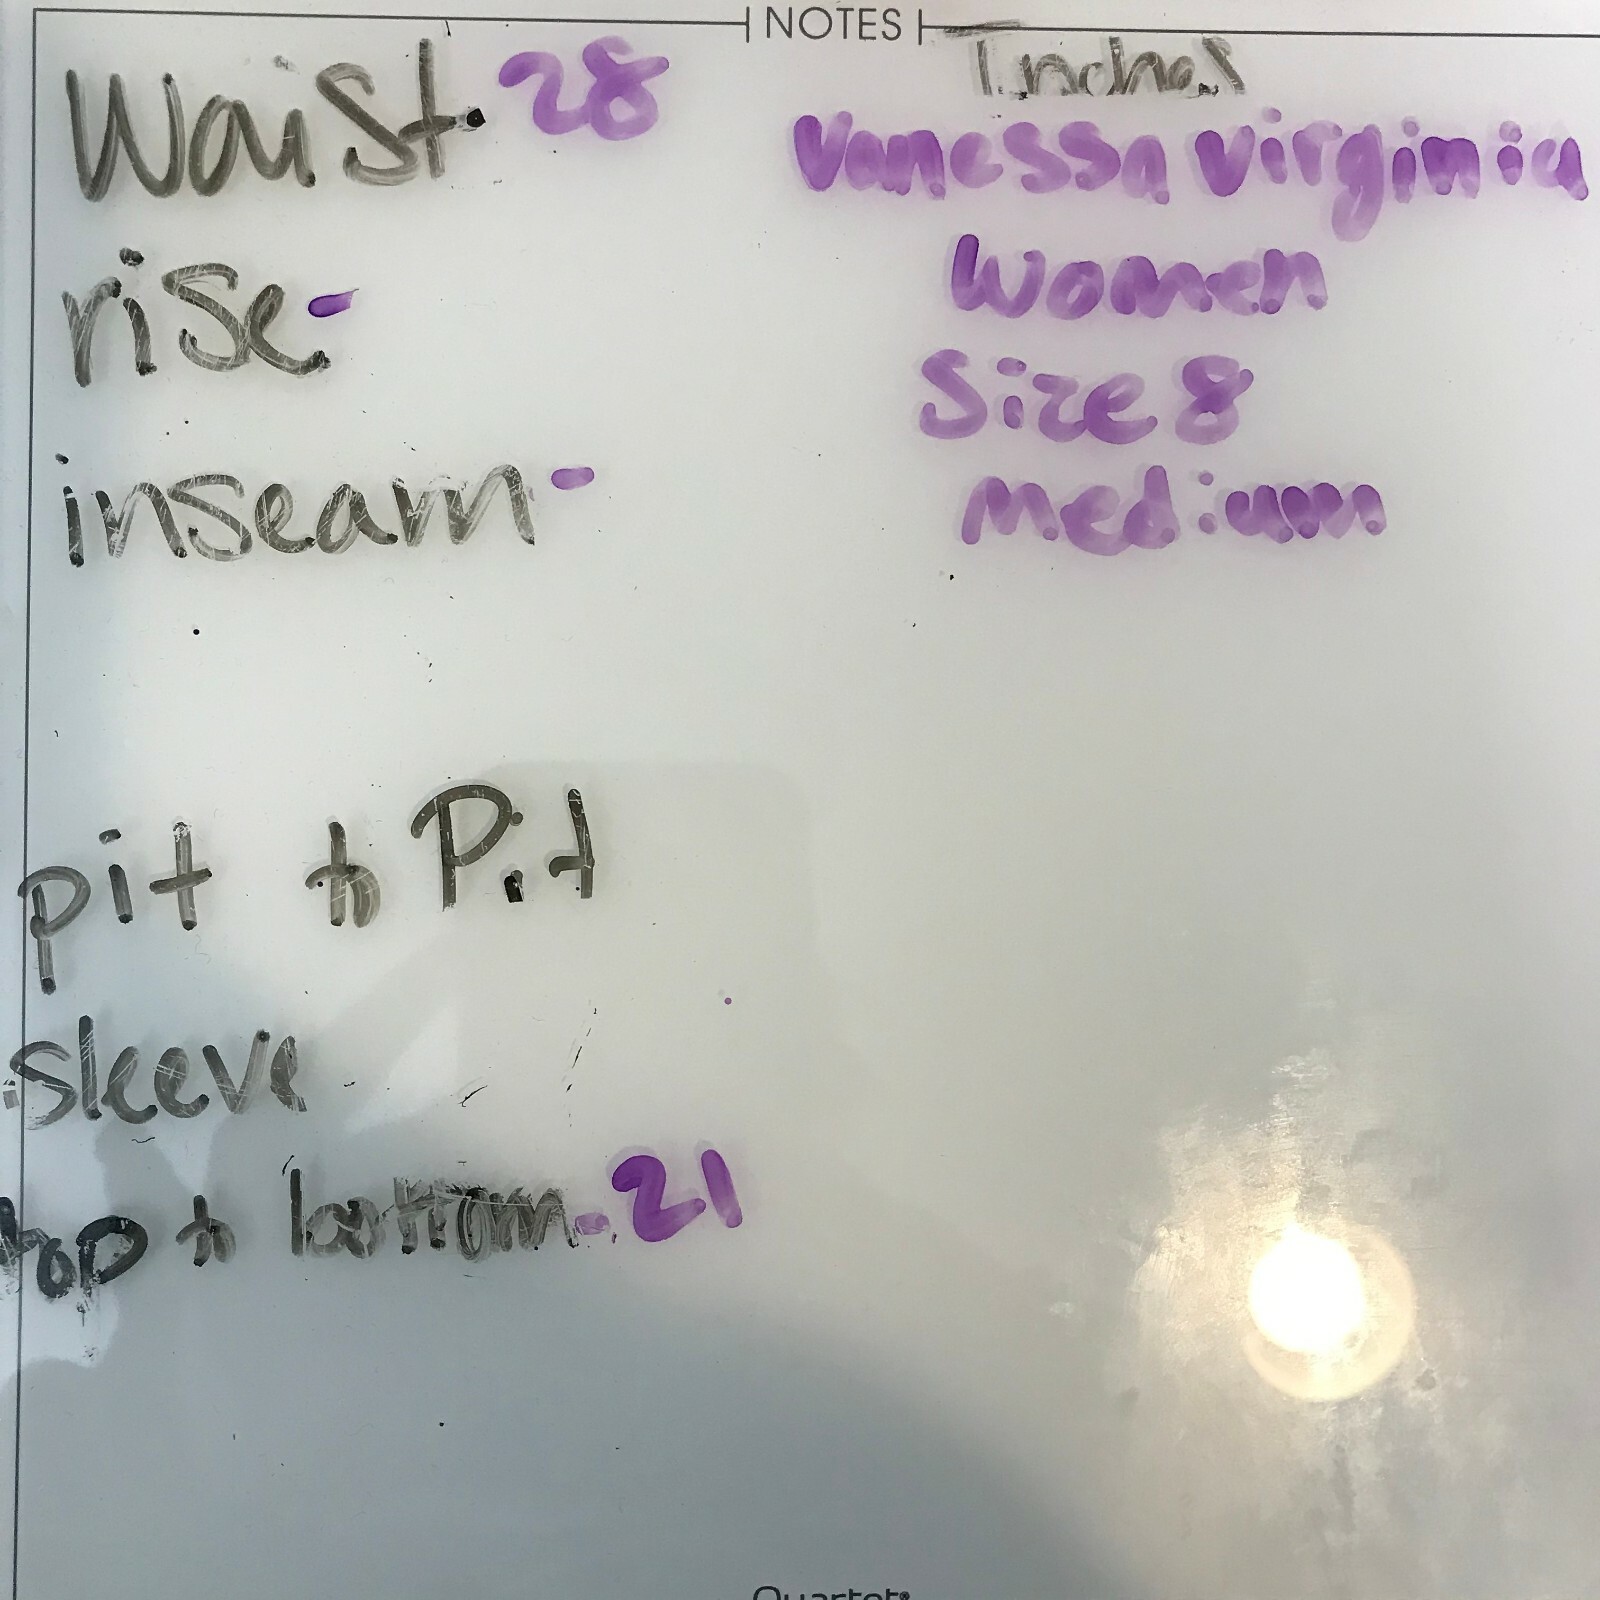 NOTES
Inches
Waist. 28
Vanessa Virginia
rise-
Women
Size 8
inseam -
Medium
pit to Pit
sleeve
top to bottom - 21
Quartet